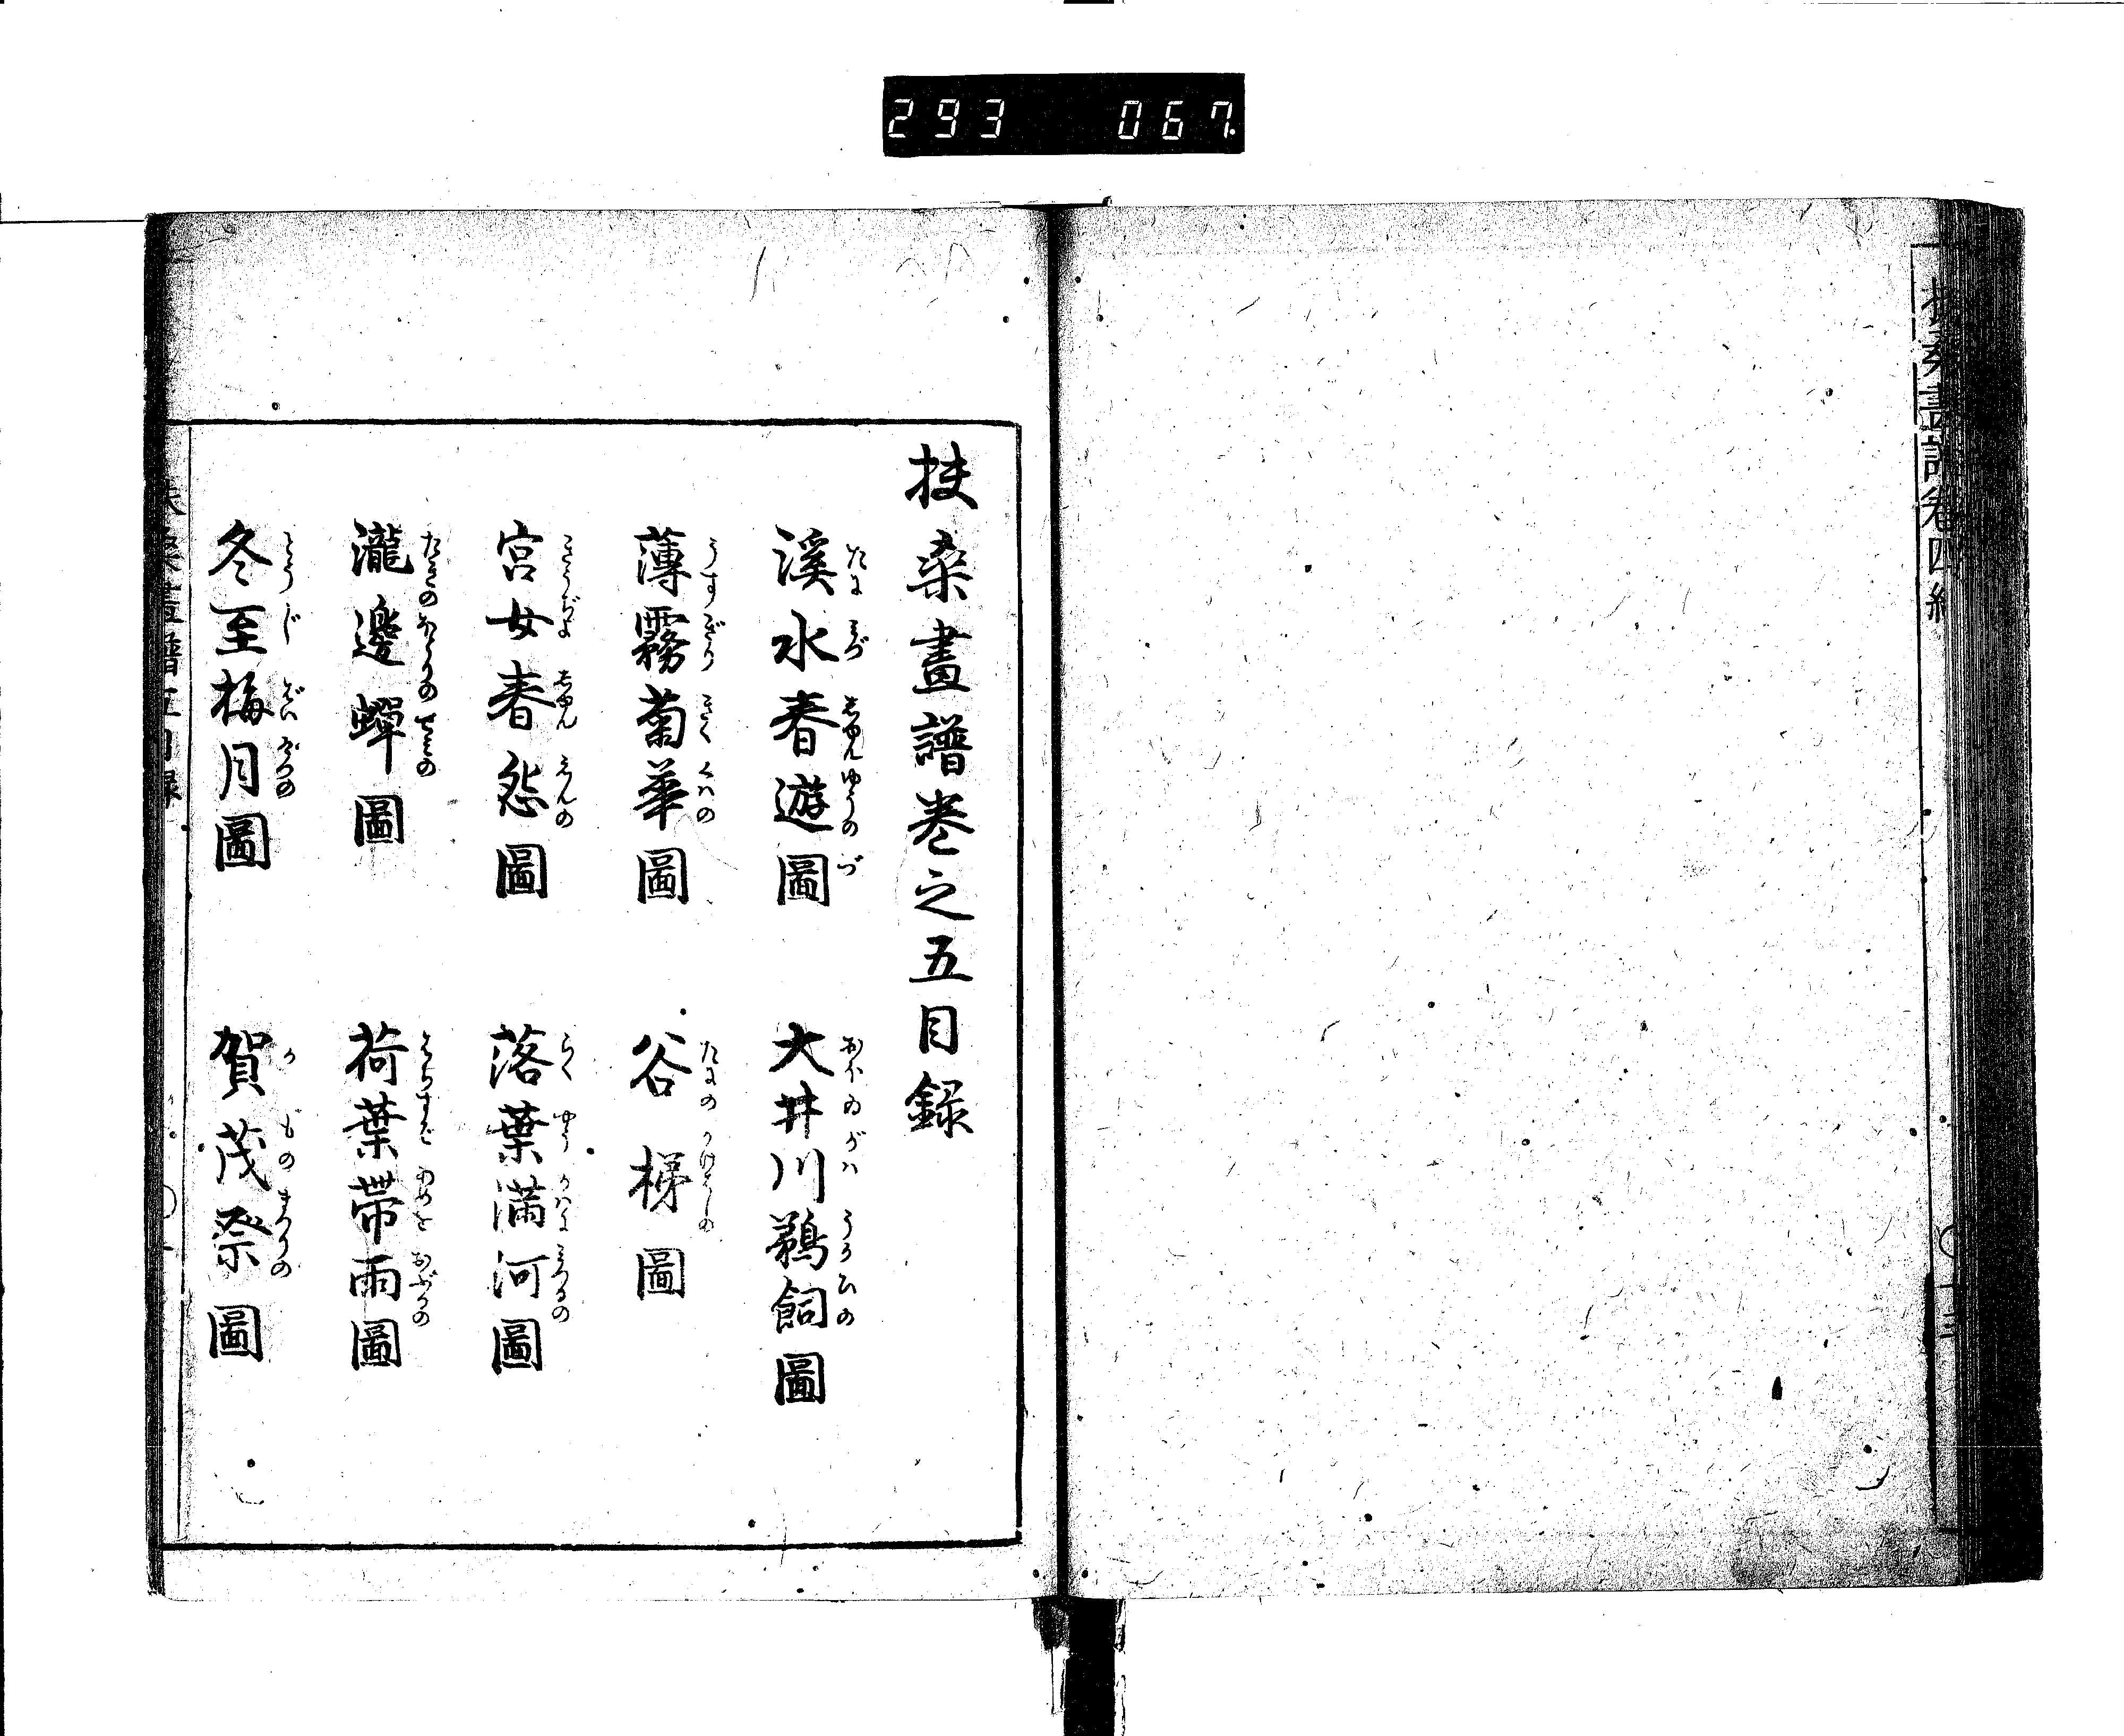 293 067
扶桑畫譜卷四終
十三
扶桑畫譜卷之五目録
溪水春遊圖 大井川鵜飼圖
薄霧菊華圖 谷梯圖
宮女春怨圖 落葉満河圖
瀧邊蟬圖 荷葉帶雨圖
冬至梅月圖 賀茂祭圖
扶桑畫譜五目録